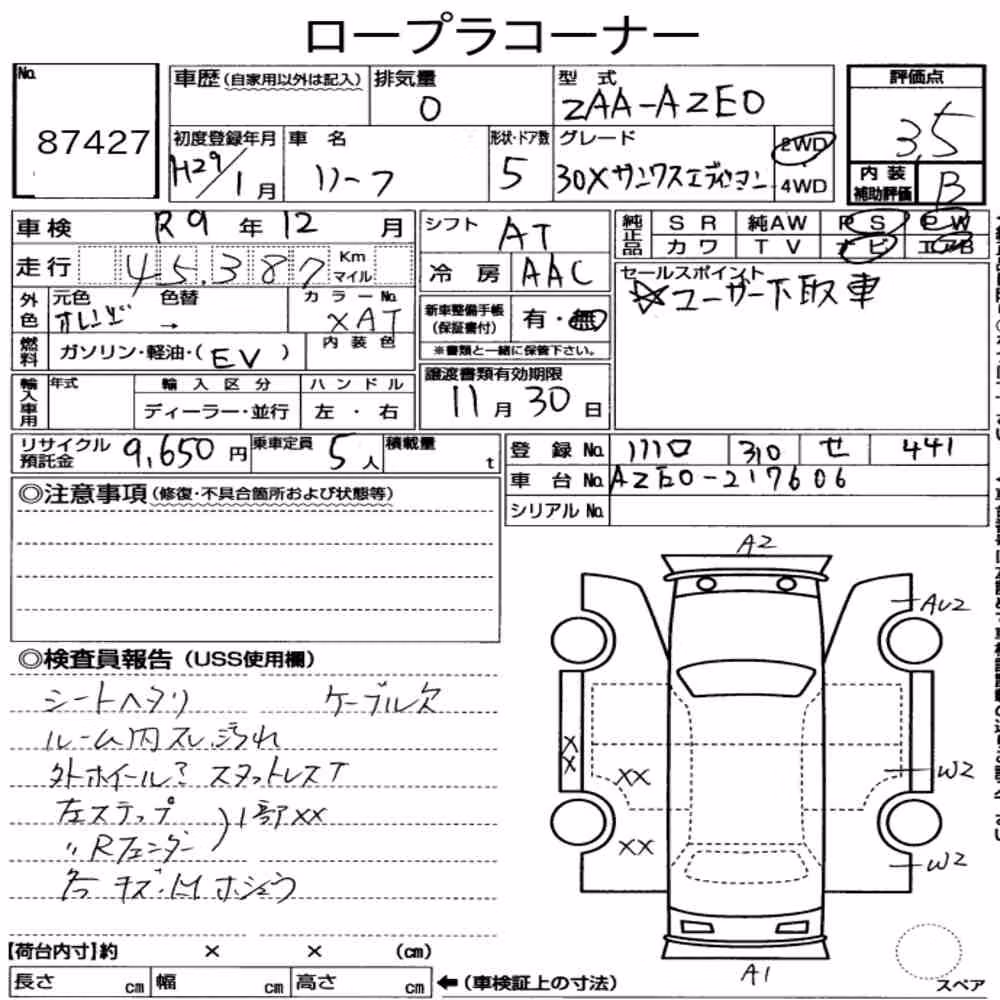 ロープラコーナー
No. 87427
車歴(自家用以外は記入)
排気量 0
型式 ZAA-AZE0
評価点 3.5
初度登録年月 H29/1月
車名 リーフ
形状・ドア数 5
グレード 30Xサンクスエディション
2WD
4WD
内装補助評価 B
車検 R9年12月
シフト AT
純正品 SR 純AW PS PW
カワ TV ナビ エアB
走行 45,387 Km マイル
冷房 AAC
セールスポイント
☆ユーザー下取車
外色 元色 オレンジ 色替 → カラーNo. XAT
新車整備手帳(保証書付) 有・無
※書類と一緒に保管下さい。
燃料 ガソリン・軽油・(EV) 内装色
譲渡書類有効期限
11月30日
輸入車用 年式 輸入区分 ハンドル
ディーラー・並行 左・右
リサイクル預託金 9,650円 乗車定員 5人 積載量 t
登録No. 310 せ 441
車台No. AZE0-217606
シリアルNo.
◎注意事項(修復・不具合箇所および状態等)
◎検査員報告(USS使用欄)
シートヘタリ ケーブル欠
ルーム内スレ汚れ
外ホイール? スタットレスT
左ステップ 1部XX
〃Rフェンダー
各キズ・凹ホシュウ
A2
AU2
XX
XX
W2
XX
W2
A1
【荷台内寸】約 × × (cm)
長さ cm 幅 cm 高さ cm
←(車検証上の寸法)
スペア